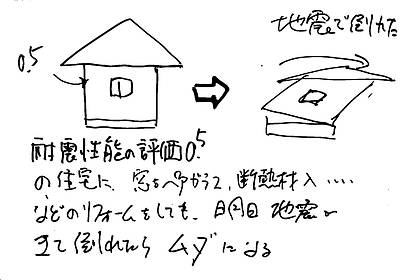 地震で倒れた
0.5
耐震性能の評価0.5
の住宅に、窓をペアガラス、断熱材入‥‥
などのリフォームをしても、日 地震が
きて倒れたら ムダになる